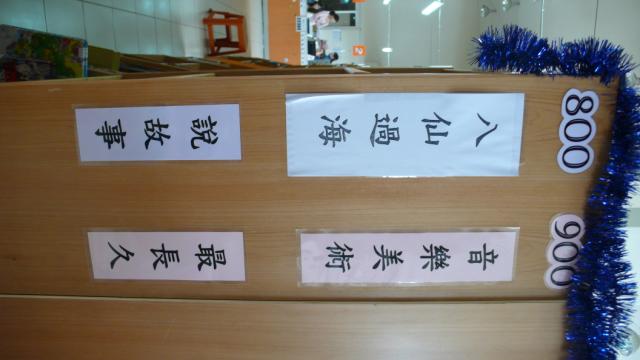 800
八仙過海
說故事
900
音樂美術
最長久
2